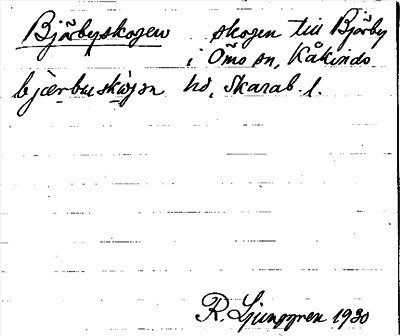 Bjärbyskogen skogen till Bjärby
i Ömo sn, Kåkinds
bjærbuskὼjən hd, Skarab. l.
R. Ljunggren 1930